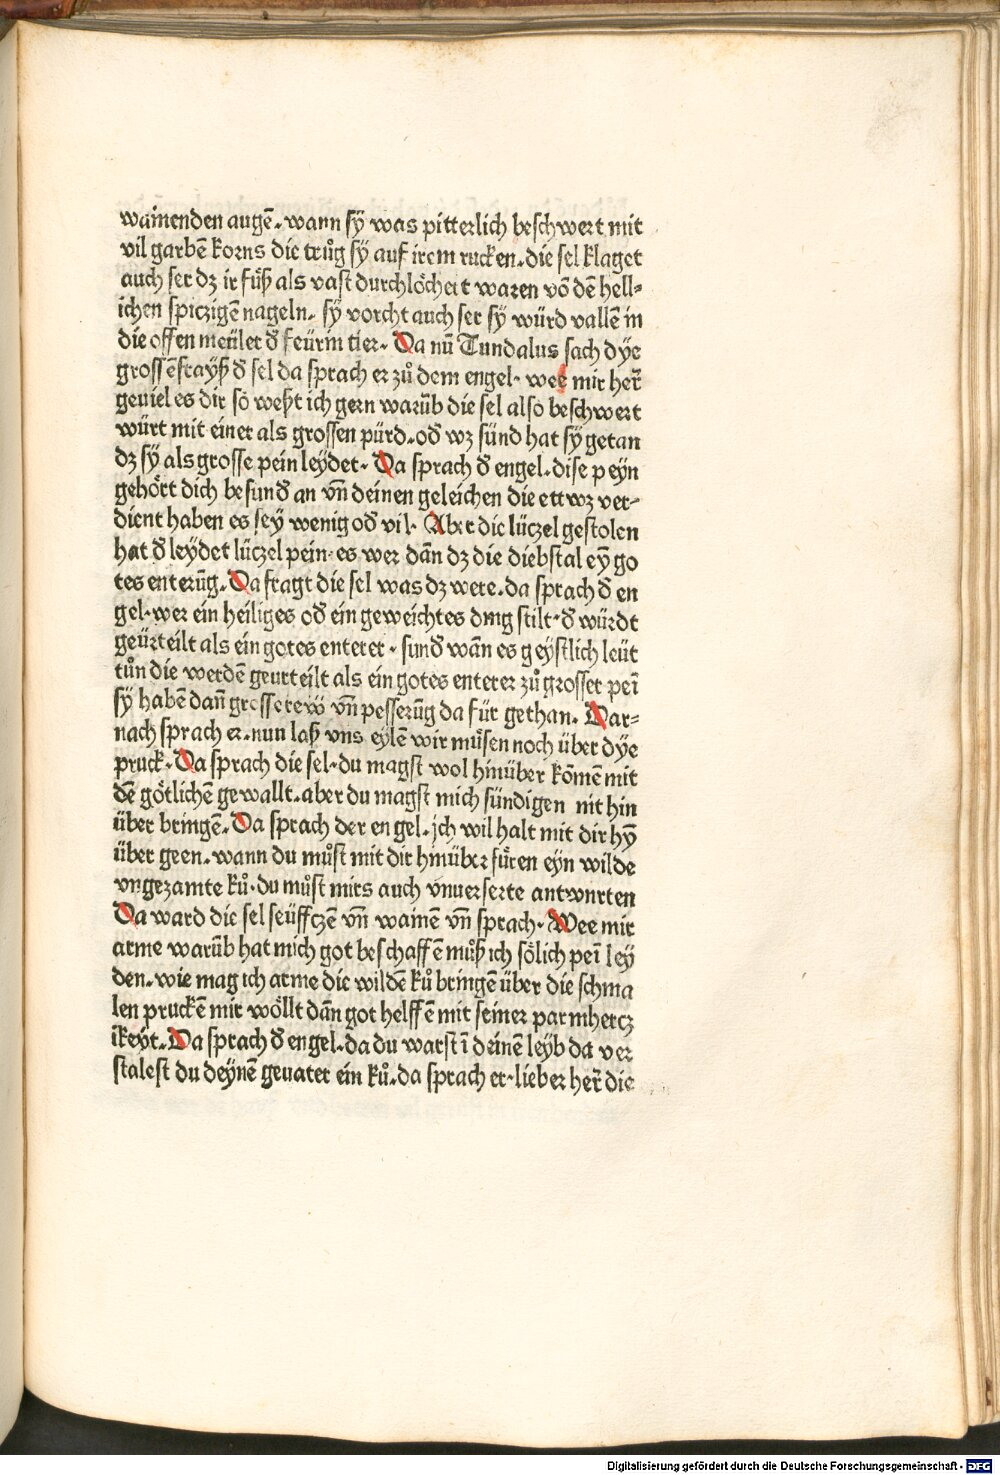 wainenden augē. wann sÿ was pitterlich beschwert mit
vil garbē korns die trůg sÿ auf irem rucken. die sel klaget
auch ser dz ir füß als vast durchlöchert waren vō dē hell-
ichen spiczigē nageln. sÿ vorcht auch ser sÿ würd vallē in
die offen meüler đ feürin tier. Da nū Tundalus sach dÿe
grossē frayß đ sel da sprach er zů dem engel. wee mir her̄
geuiel es dir so weßt ich gern warūb die sel also beschwert
würt mit einer als grossen pürd. ođ wz sünd hat sÿ getan
dz sÿ als grosse pein leÿdet. Da sprach đ engel. dise peyn
gehört dich besunđ an vn̄ deinen geleichen die ettwz ver-
dient haben es seÿ wenig ođ vil. Aber die lüczel gestolen
hat đ leÿdet lüczel pein. es wer dān dz die diebstal eÿ go
tes enterūg. Da fragt die sel was dz were. da sprach đ en
gel. wer ein heiliges ođ ein geweichtes ding stilt. đ würdt
geürteilt als ein gotes enterer. sunđ wān es geÿstlich leüt
tůn die werdē geurteilt als ein gotes enterer zů grosser peī
sÿ habē dan̄ grosse rew vn̄ pesserūg da für gethan. Dar-
nach sprach er. nun laß vns eylē wir müsen noch über dÿe
pruck. Da sprach die sel. du magst wol hinüber kōmē mit
dē götlichē gewallt. aber du magst mich sündigen nit hin
über bringē. Da sprach der engel. ich wil halt mit dir hȳ
über geen. wann du můst mit dir hinüber füren eÿn wilde
vngezamte ků. du můst mirs auch vnuerserte antwurten
Da ward die sel seüffczē vn̄ wainē vn̄ sprach. Wee mir
arme warūb hat mich got beschaffē můß ich sölich peī leÿ
den. wie mag ich arme die wildē ků bringē über die schma
len pruckē mir wöllt dān got helffē mit seiner parmhercz
ikeyt. Da sprach đ engel. da du warst ī deinē leÿb da ver
stalest du deÿnē geuater ein ků. da sprach er. lieber her̄ die
Digitalisierung gefördert durch die Deutsche Forschungsgemeinschaft - DFG